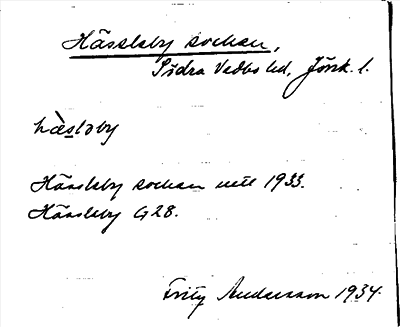 Hässleby socken,
Södra Vedbo hd, Jönk. l.
hàsləby
Hässleby socken 1933.
Hässleby G28.
Fritz Andersson 1934.